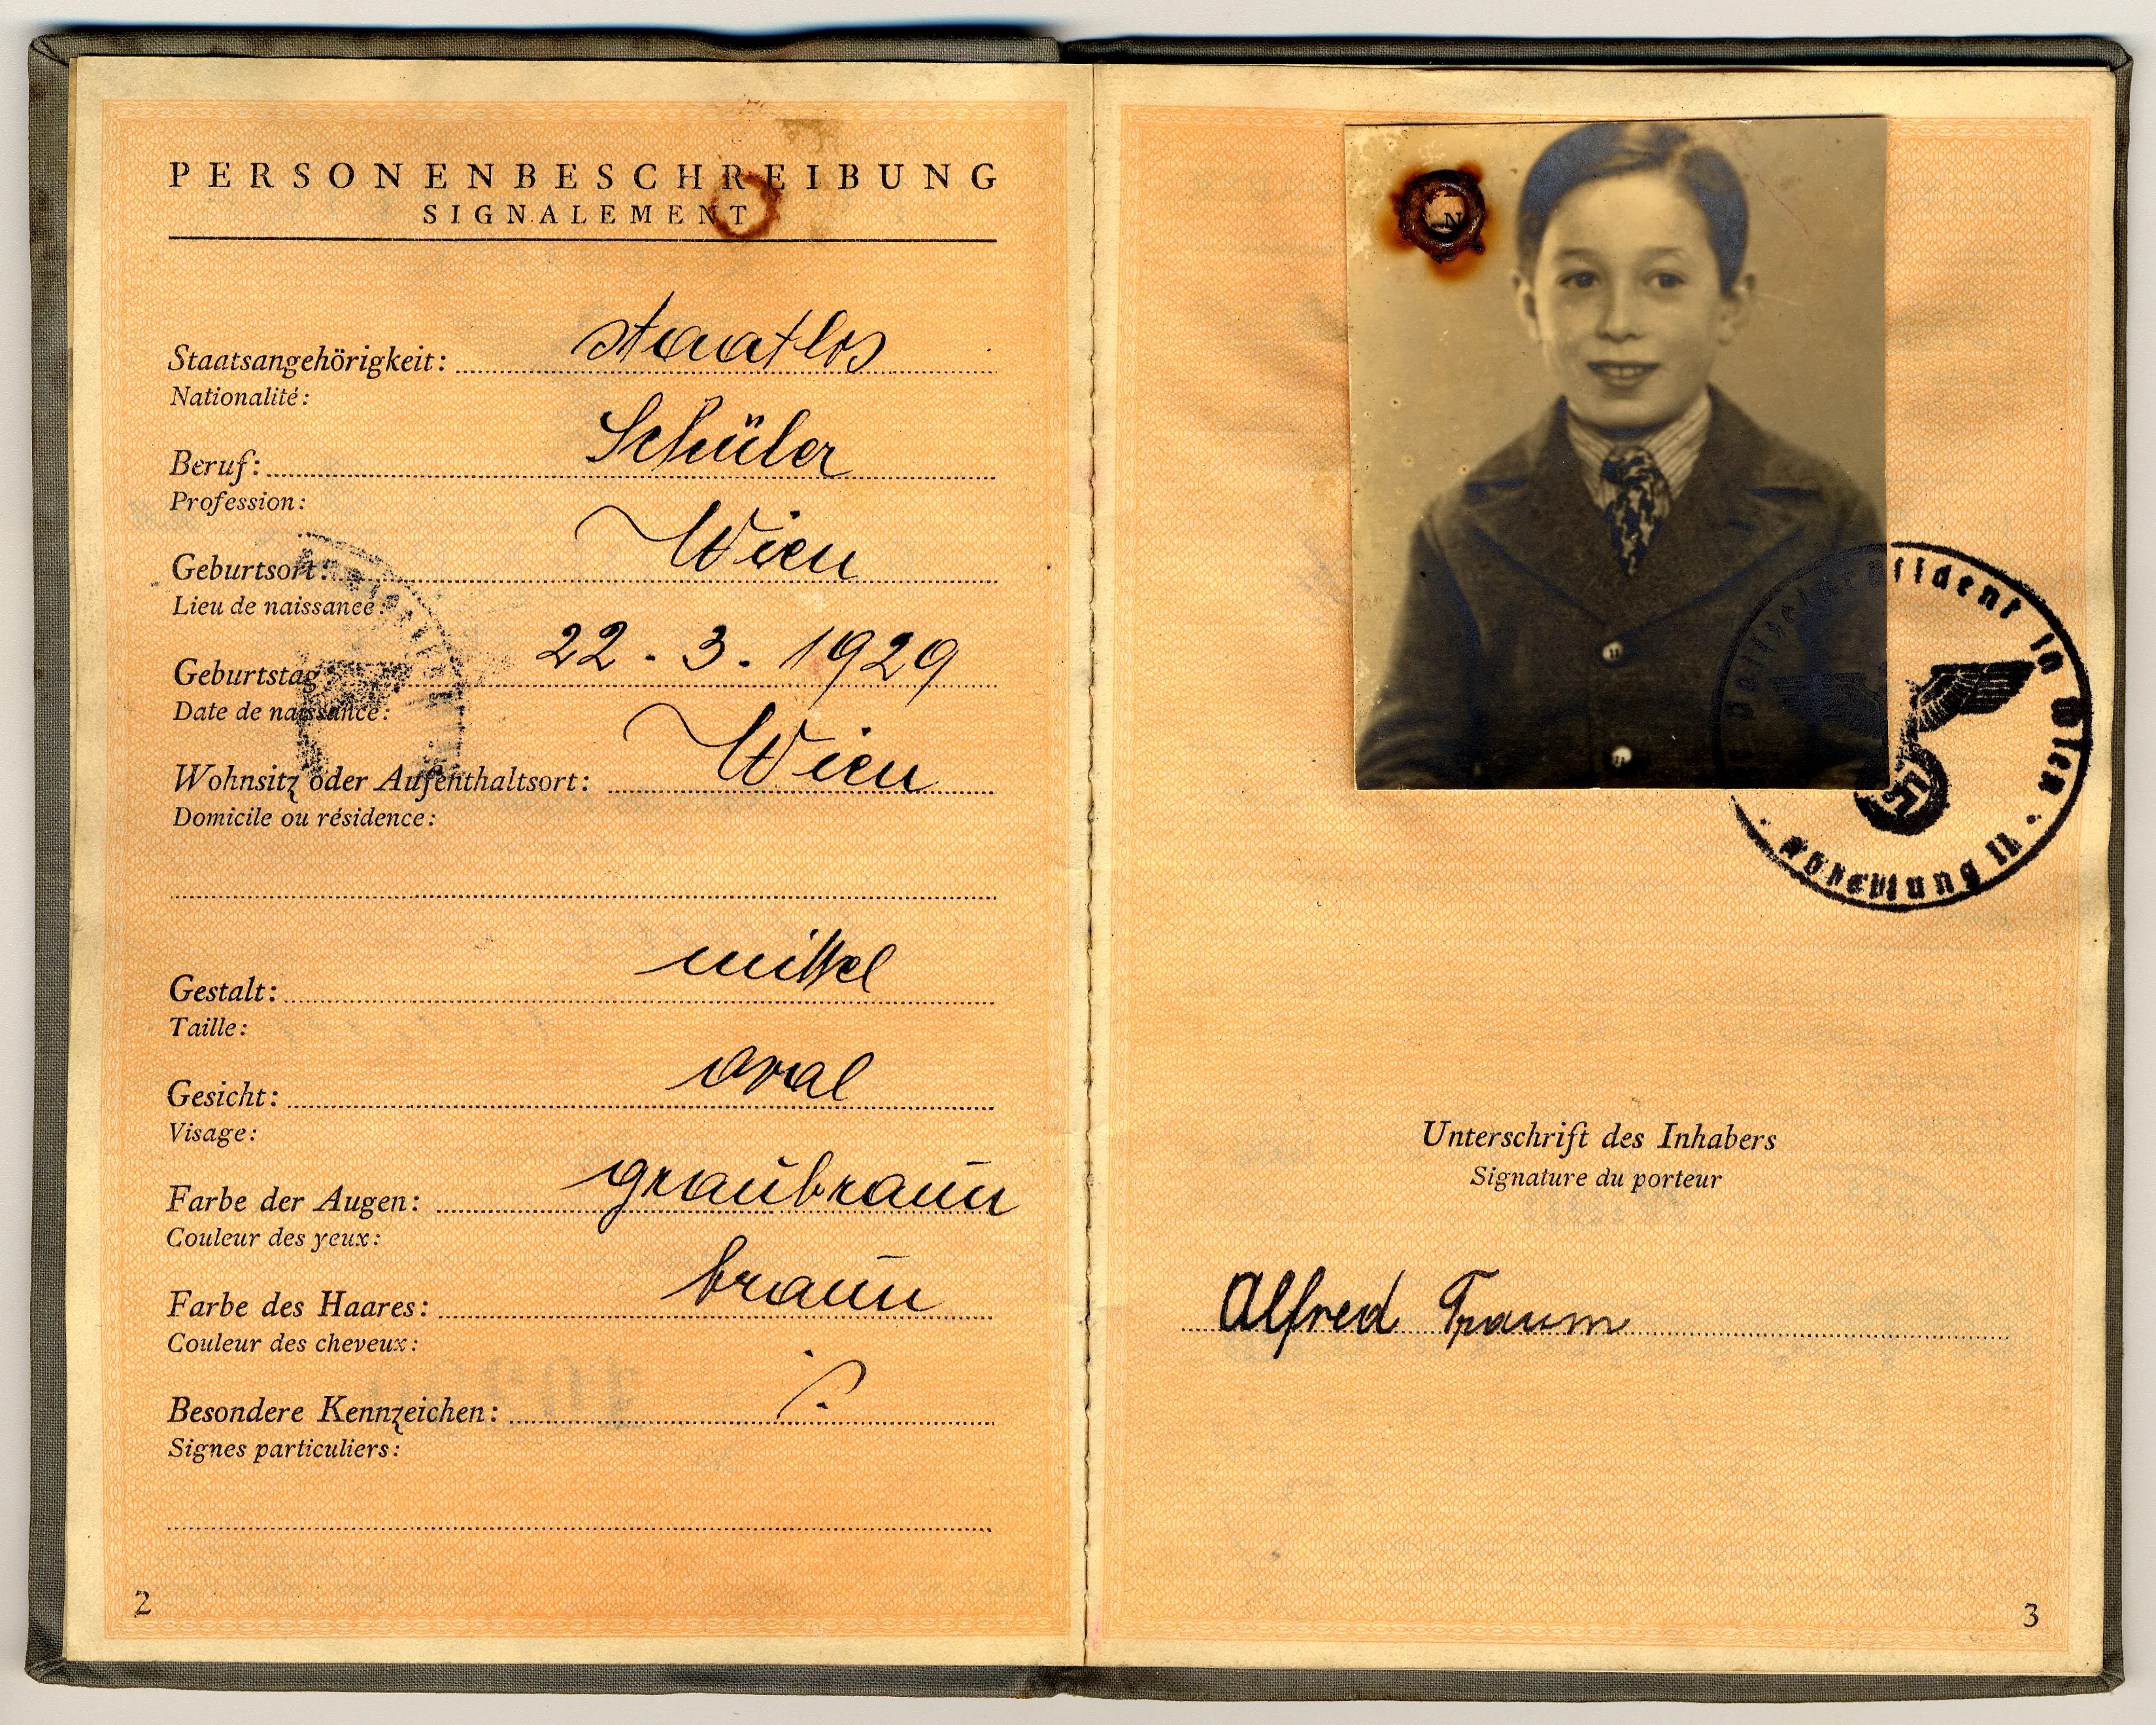 PERSONENBESCHREIBUNG
SIGNALEMENT
Staatsangehörigkeit: staatlos
Nationalité:
Beruf: Schüler
Profession:
Geburtsort: Wien
Lieu de naissance:
Geburtstag: 22. 3. 1929
Date de naissance:
Wohnsitz oder Aufenthaltsort: Wien
Domicile ou résidence:
Gestalt: mittel
Taille:
Gesicht: oval
Visage:
Farbe der Augen: graubraun
Couleur des yeux:
Farbe des Haares: braun
Couleur des cheveux:
Besondere Kennzeichen:
Signes particuliers:
2
Polizeipräsident in Wien
Abteilung II
Unterschrift des Inhabers
Signature du porteur
Alfred Traum
3